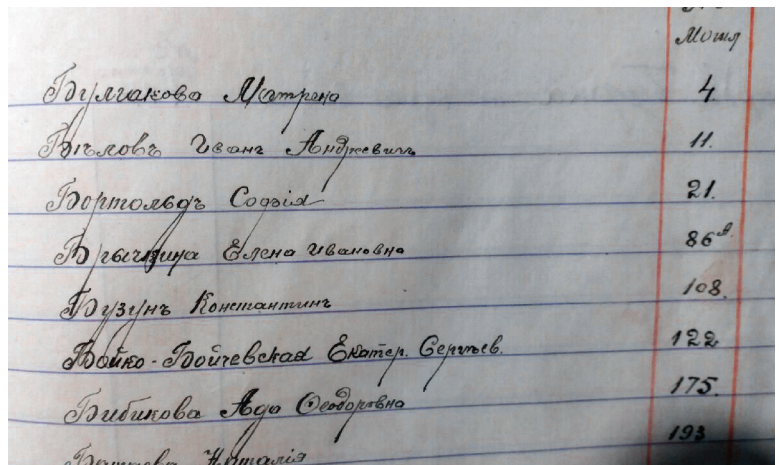 Могил
Булгакова Матрена 4.
Бѣловъ Иванъ Андреевичъ 11.
Бортольдъ Софія 21.
Брычкина Елена Ивановна 86ᵃ.
Бузунъ Константинъ 108.
Бойко-Бойчевская Екатер. Сергѣев. 122
Бибикова Ада Ѳеодоровна 175.
Наталія 193